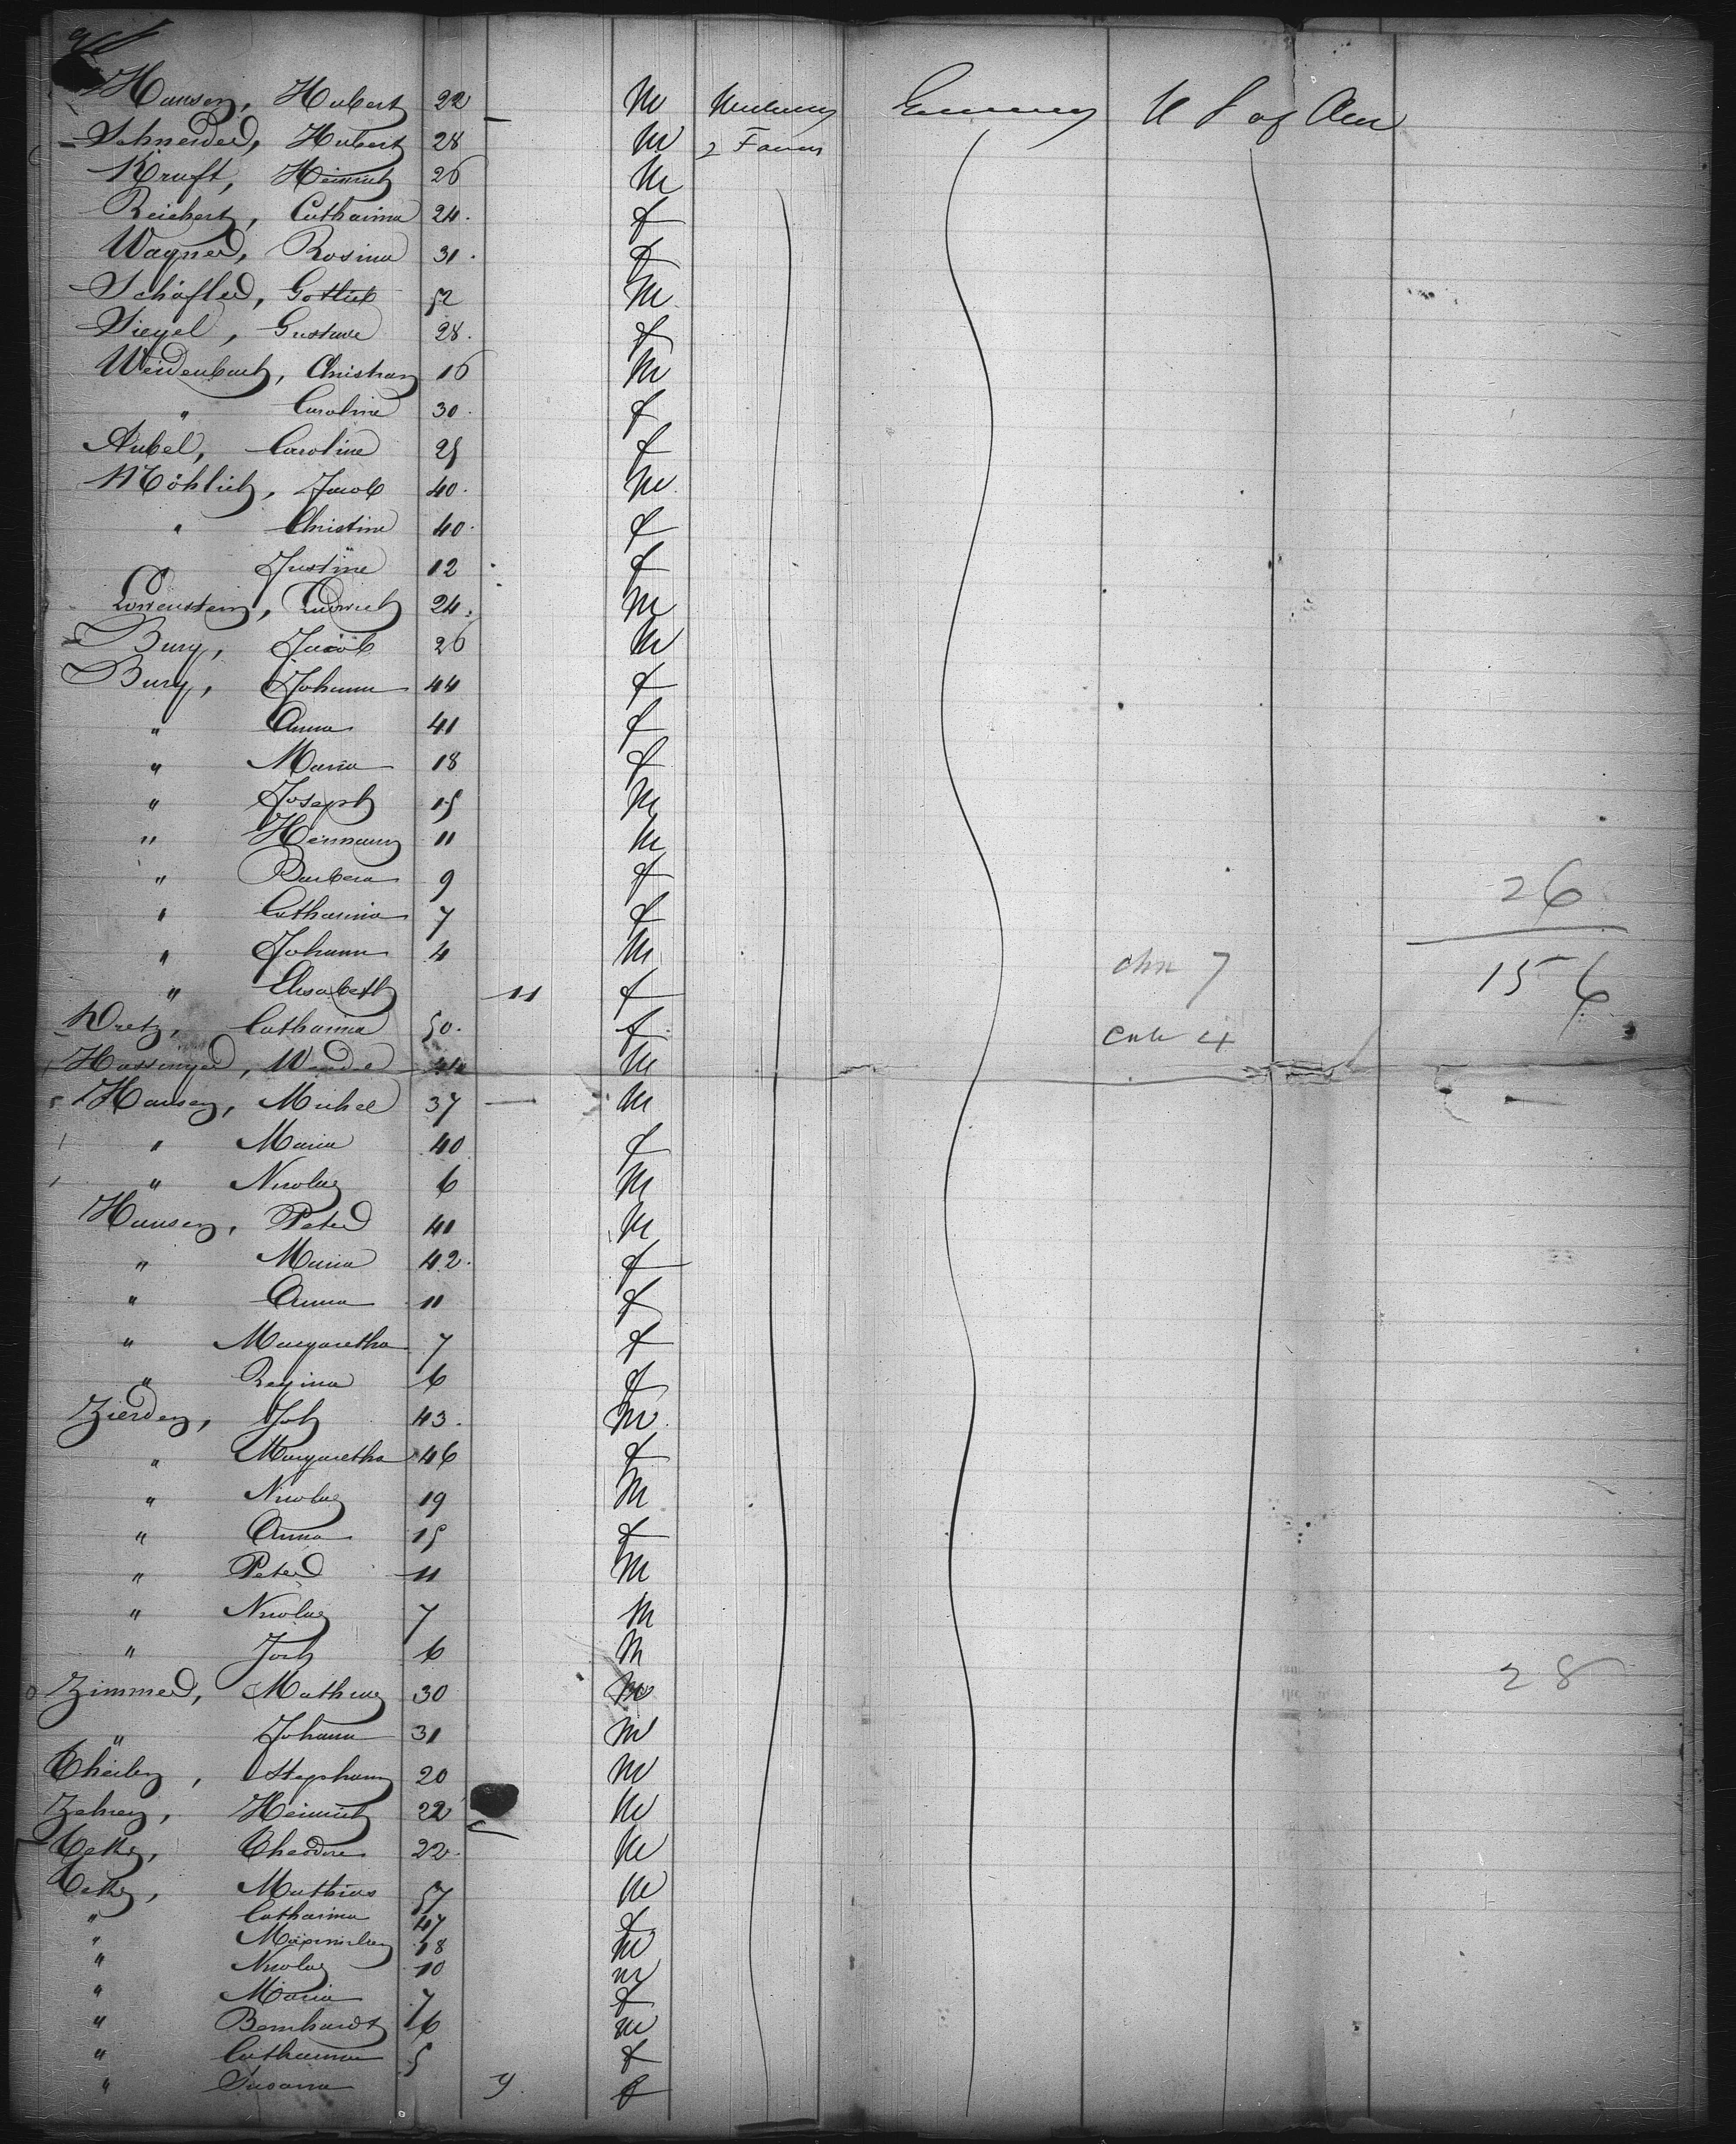 Hansen, Hubert 22 M Germany U S of Am
Schneider, Hubert 28 M 2 Farms
Kruft, Heinrich 26 M
Reichert, Catharina 24 f
Wagner, Rosina 31 f
Schäfler, Gotlieb 52 M
Siegel, Gustave 28 f
Weidenbach, Christian 16 M
" Caroline 30 f
Aubel, Caroline 25 f
Möhlich, Jacob 40 M
" Christine 40 f
" Justine 12 f
Löwenstein, Ludwich 24 M
Bury, Jacob 26 M
Bury, Johanna 44 f
" Anna 41 f
" Maria 18 f
" Joseph 15 M
" Hermann 11 M
" Barbera 9 f 26
" Catharina 7 f
" Johann 4 M chn 7 156
" Elisabeth 11 f
Dretz, Catharina 50 f 4
Hassinger, Wendel 44 M
Hansen, Michel 37 M
" Maria 40 f
" Nicolas 6 M
Hansen, Peter 41 M
" Maria 42 f
" Anna 11 f
" Margaretha 7 f
" Regina 6 f
Zierden, Joh 43 M
" Margaretha 46 f
" Nicolas 19 M
" Anna 15 f
" Peter 11 M
" Nicolas 7 M
" Joh 6 M
Zimmer, Mathias 30 M 28
" Johann 31 M
Theilen, Stephann 20 M
Zehren, Heinrich 22 M
Theodore 22 M
Mathias 57 M
" Catharina 47 f
" Maximilien 18 M
" Nicolas 10 M
" Maria 7 f
" Bernhardt 6 M
" Catharina 5 f
" Susanna 9 f